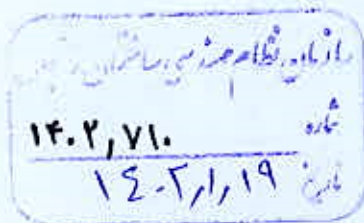 سازمان نظام مهندسی ساختمان
شماره ۱۴۰۲٫۷۱۰
تاریخ ۱۴۰۲٫۱٫۱۹